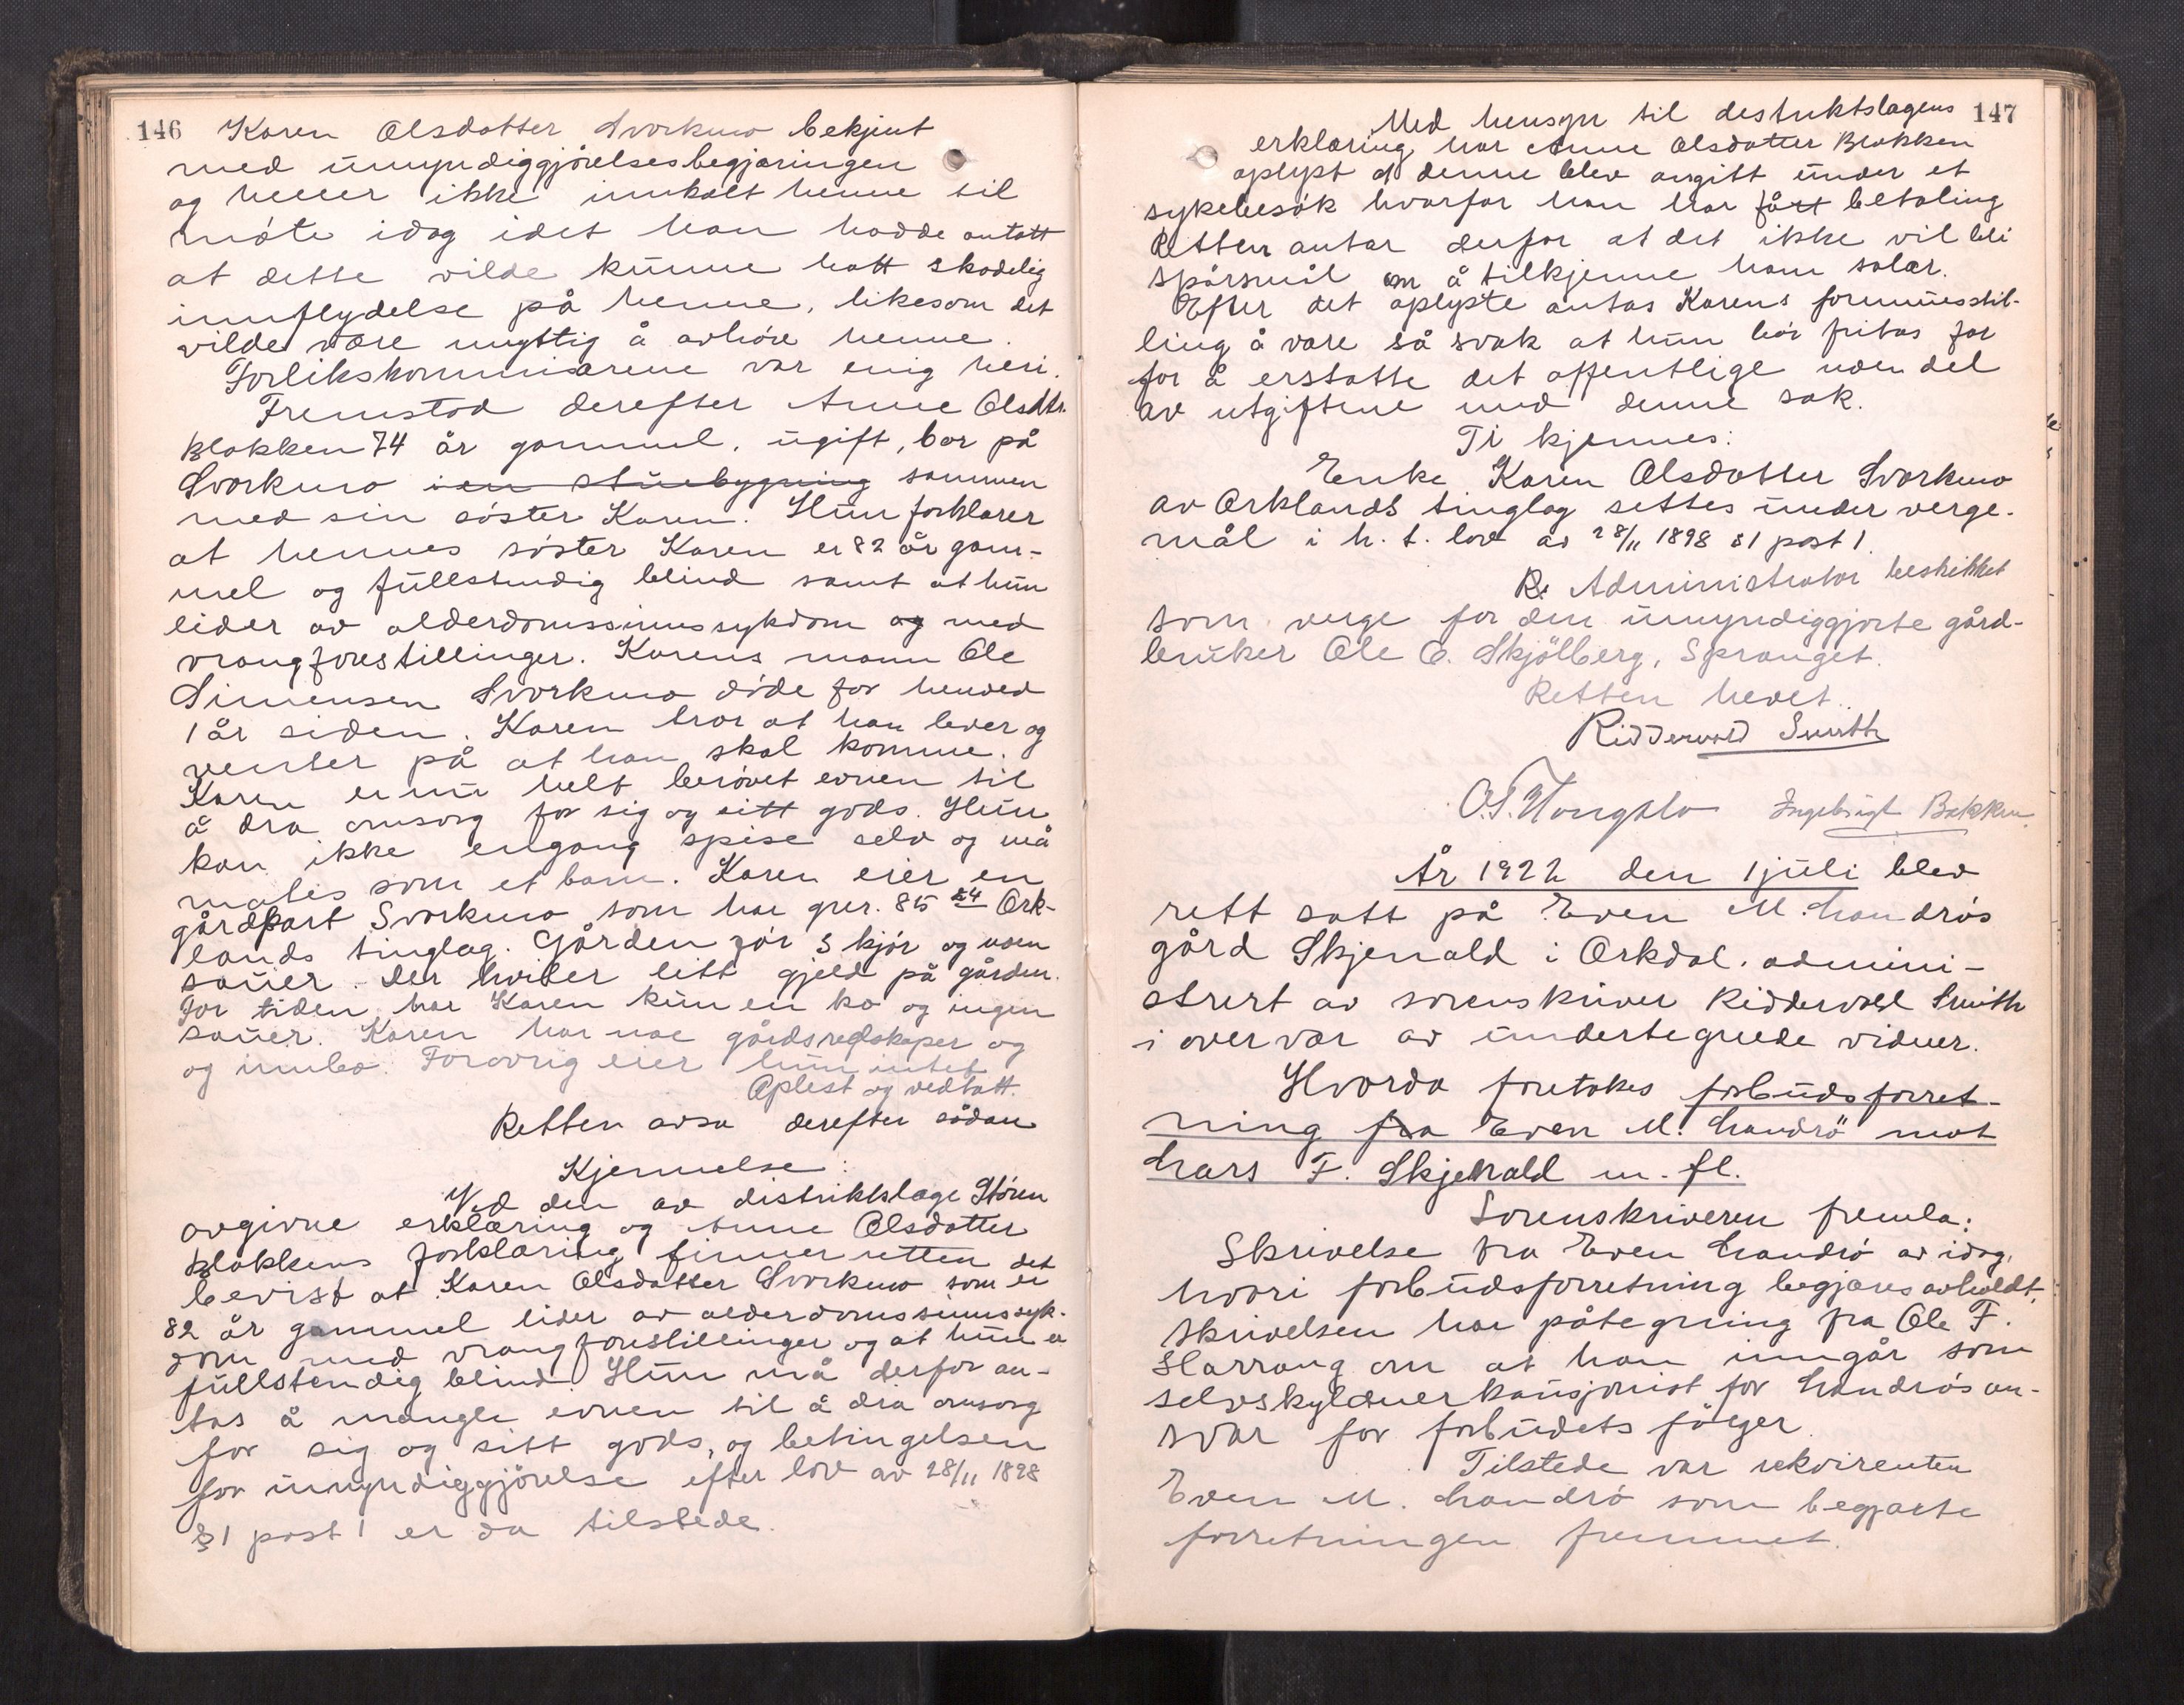 146 Karen Olsdatter Svorkmo bekjent
med umyndiggjørelsesbegjæringen
og heller ikke innkalt henne til
møte idag idet han hadde antatt
at dette vilde kunne hatt skadelig
innflydelse på henne, likesom det
vilde være unyttig å avhøre henne.
Forlikskommisærene var enig heri.
Fremstod derefter Anne Olsdtr.
Blokken 74 år gammel, ugift, bor på
Svorkmo i en stuebygning sammen
med sin søster Karen. Hun forklarer
at hennes søster Karen er 82 år gam-
mel og fullstendig blind samt at hun
lider av alderdomssinnssykdom og med
vrangforestillinger. Karens mann Ole
Simensen Svorkmo døde for henved
1 år siden. Karen tror at han lever og
venter på at han skal komme.
Karen er nu helt berøvet evnen til
å dra omsorg for sig og sitt gods. Hun
kan ikke engang spise selv og må
mates som et barn. Karen eier en
gårdpart Svorkmo som har gnr. 85 24 Ork-
lands tinglag. Gården før 3 kjør og noen
sauer. Der hviler litt gjeld på gården.
For tiden har Karen kun en ko og ingen
sauer. Karen har noe gårdsredskaper og
og innbo. Forøvrig eier hun intet
Oplest og vedtatt.
Retten avsa derefter sådan
Kjennelse:
Ved den av distriktslæge Støren
avgivne erklæring og Anne Olsdatter
Blokkens forklaring finner retten det
bevist at Karen Olsdatter Svorkmo som er
82 år gammel lider av alderdomssinnssyk-
dom med vrangforestillinger og at hun er
fullstendig blind. Hun må derfor an-
tas å mangle evnen til å dra omsorg
for sig og sitt gods, og betingelsen
for umyndiggjørelse efter lov av 28/11 1898
§ 1 post 1 er da tilstede.
Med hensyn til destriktslægens 147
erklæring har Anne Olsdatter Blokken
oplyst at denne blev avgitt under et
sykebesøk hvorfor han har fått betaling
Retten antar derfor at det ikke vil bli
spørsmål om å tilkjenne ham salær.
Efter det oplyste antas Karens formuesstil-
ling å være så svak at hun bør fritas for
for å erstatte det offentlige noen del
av utgiftene med denne sak.
Ti kjennes:
Enke Karen Olsdatter Svorkmo
av Orklands tinglag settes under verge-
mål i h. t. lov av 28/11 1898 § 1 post 1.
R. Administrator beskikket
som verge for den umyndiggjorte gård-
bruker Ole E. Skjølberg, Spranget.
Retten hevet.
Ridderwold Smith
Ingebrigt Bakken
År 1922 den 1 juli blev
rett satt på Even M. Landrøs
gård Skjenald i Orkdal. admini-
strert av sorenskriver Ridderwold Smith
i overvær av undertegnede vidner.
Hvorda foretokes forbudsforret-
ning fra Even M. Landrö mot
Lars F. Skjenald m. fl.
Sorenskriveren fremla:
Skrivelse fra Even Landrø av idag,
hvori forbudsforretning begjæres avholdt.
Skrivelsen har påtegning fra Ole F.
Harrang om at han inngår som
selvskyldnerkausjonist for Landrøs an-
svar for forbudets følger.
Tilstede var rekvirenten
Even M. Landrø som begjærte
forretningen fremmet.